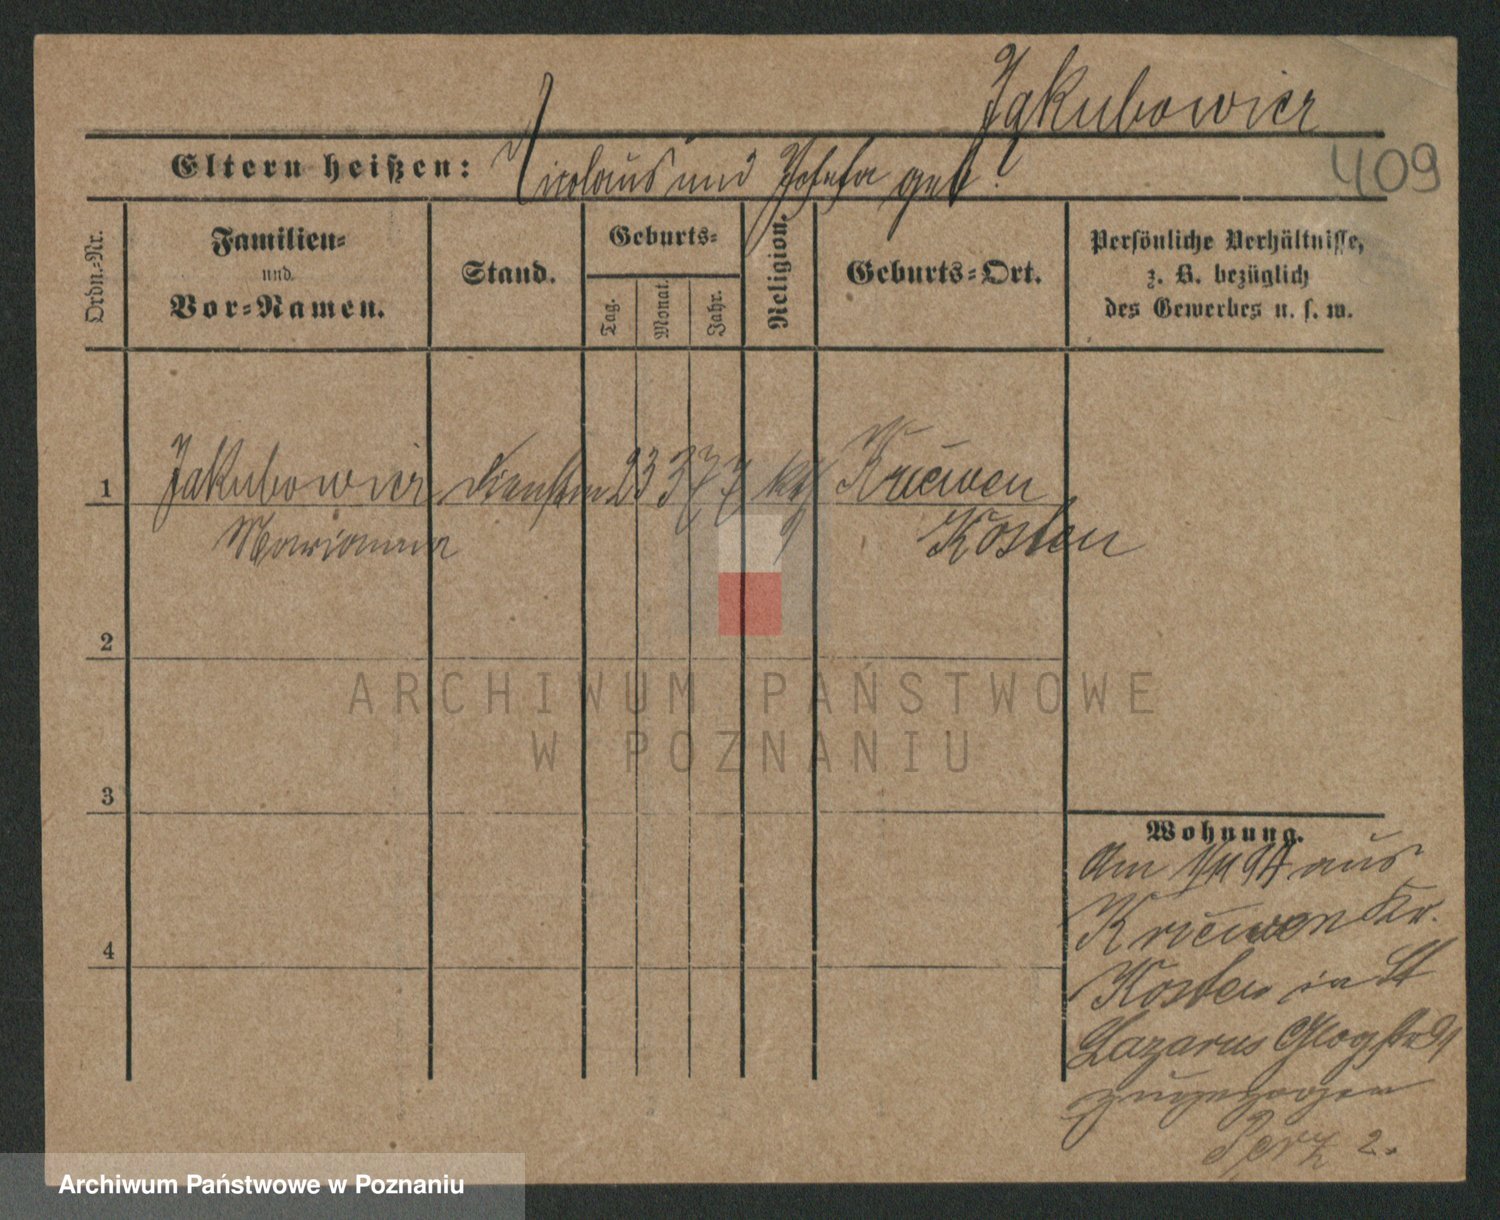 Jakubowicz
409
Eltern heißen: Nicolaus und Josefa geb ?
Ordn.-Nr.
Familien-
und
Vor-Namen.
Stand.
Geburts-
Tag.
Monat.
Jahr.
Religion.
Geburts-Ort.
Persönliche Verhältnisse,
z. B. bezüglich
des Gewerbes u. s. w.
1 Jakubowicz 23 3 77 kth Kriewen
Marianna Kosten
2
3
4
Wohnung.
Am aus
Kriewen Kr.
Kosten in St
Lazarus
zugezogen
ARCHIWUM PAŃSTWOWE
W POZNANIU
Archiwum Państwowe w Poznaniu